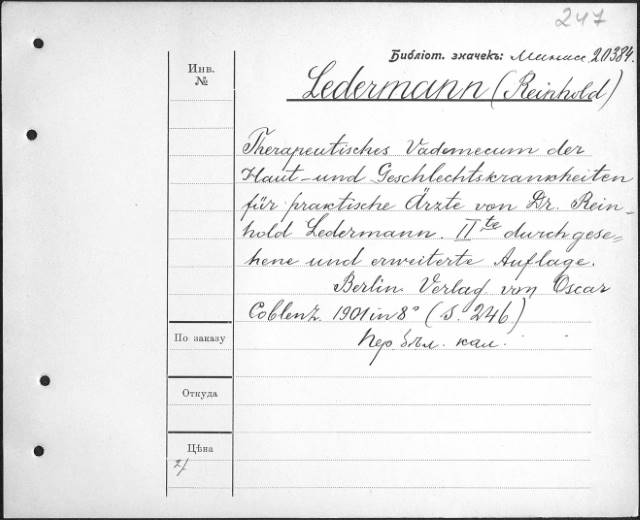 247
Библіот. значекъ: 20384.
Инв.
№
Ledermann (Reinhold)
Therapeutisches Vademecum der
Haut- und Geschlechtskrankheiten
für praktische Ärzte von Dr. Rein-
hold Ledermann. II te durchgese=
hene und erweiterte Auflage.
Berlin. Verlag von Oscar
Coblenz. 1901 in 8° (S. 246)
По заказу
Откуда
Цѣна